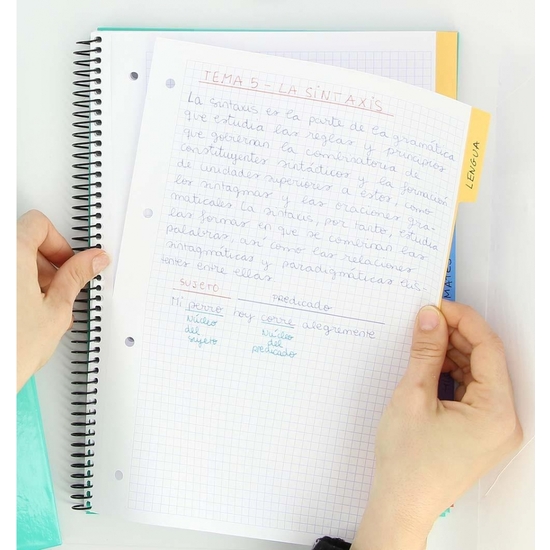 TEMA 5 - LA SINTAXIS
La sintaxis es la parte de la gramática
que estudia las reglas y principios
que gobiernan la combinatoria de
constituyentes sintácticos y la formación
de unidades superiores a estos, como
los sintagmas y las oraciones gra-
maticales. La sintaxis, por tanto, estudia
las formas en que se combinan las
palabras, así como las relaciones
sintagmáticas y paradigmáticas exis-
tentes entre ellas.
SUJETO PREDICADO
Mi perro hoy corre alegremente
Núcleo del sujeto
Núcleo del predicado
LENGUA
MATES